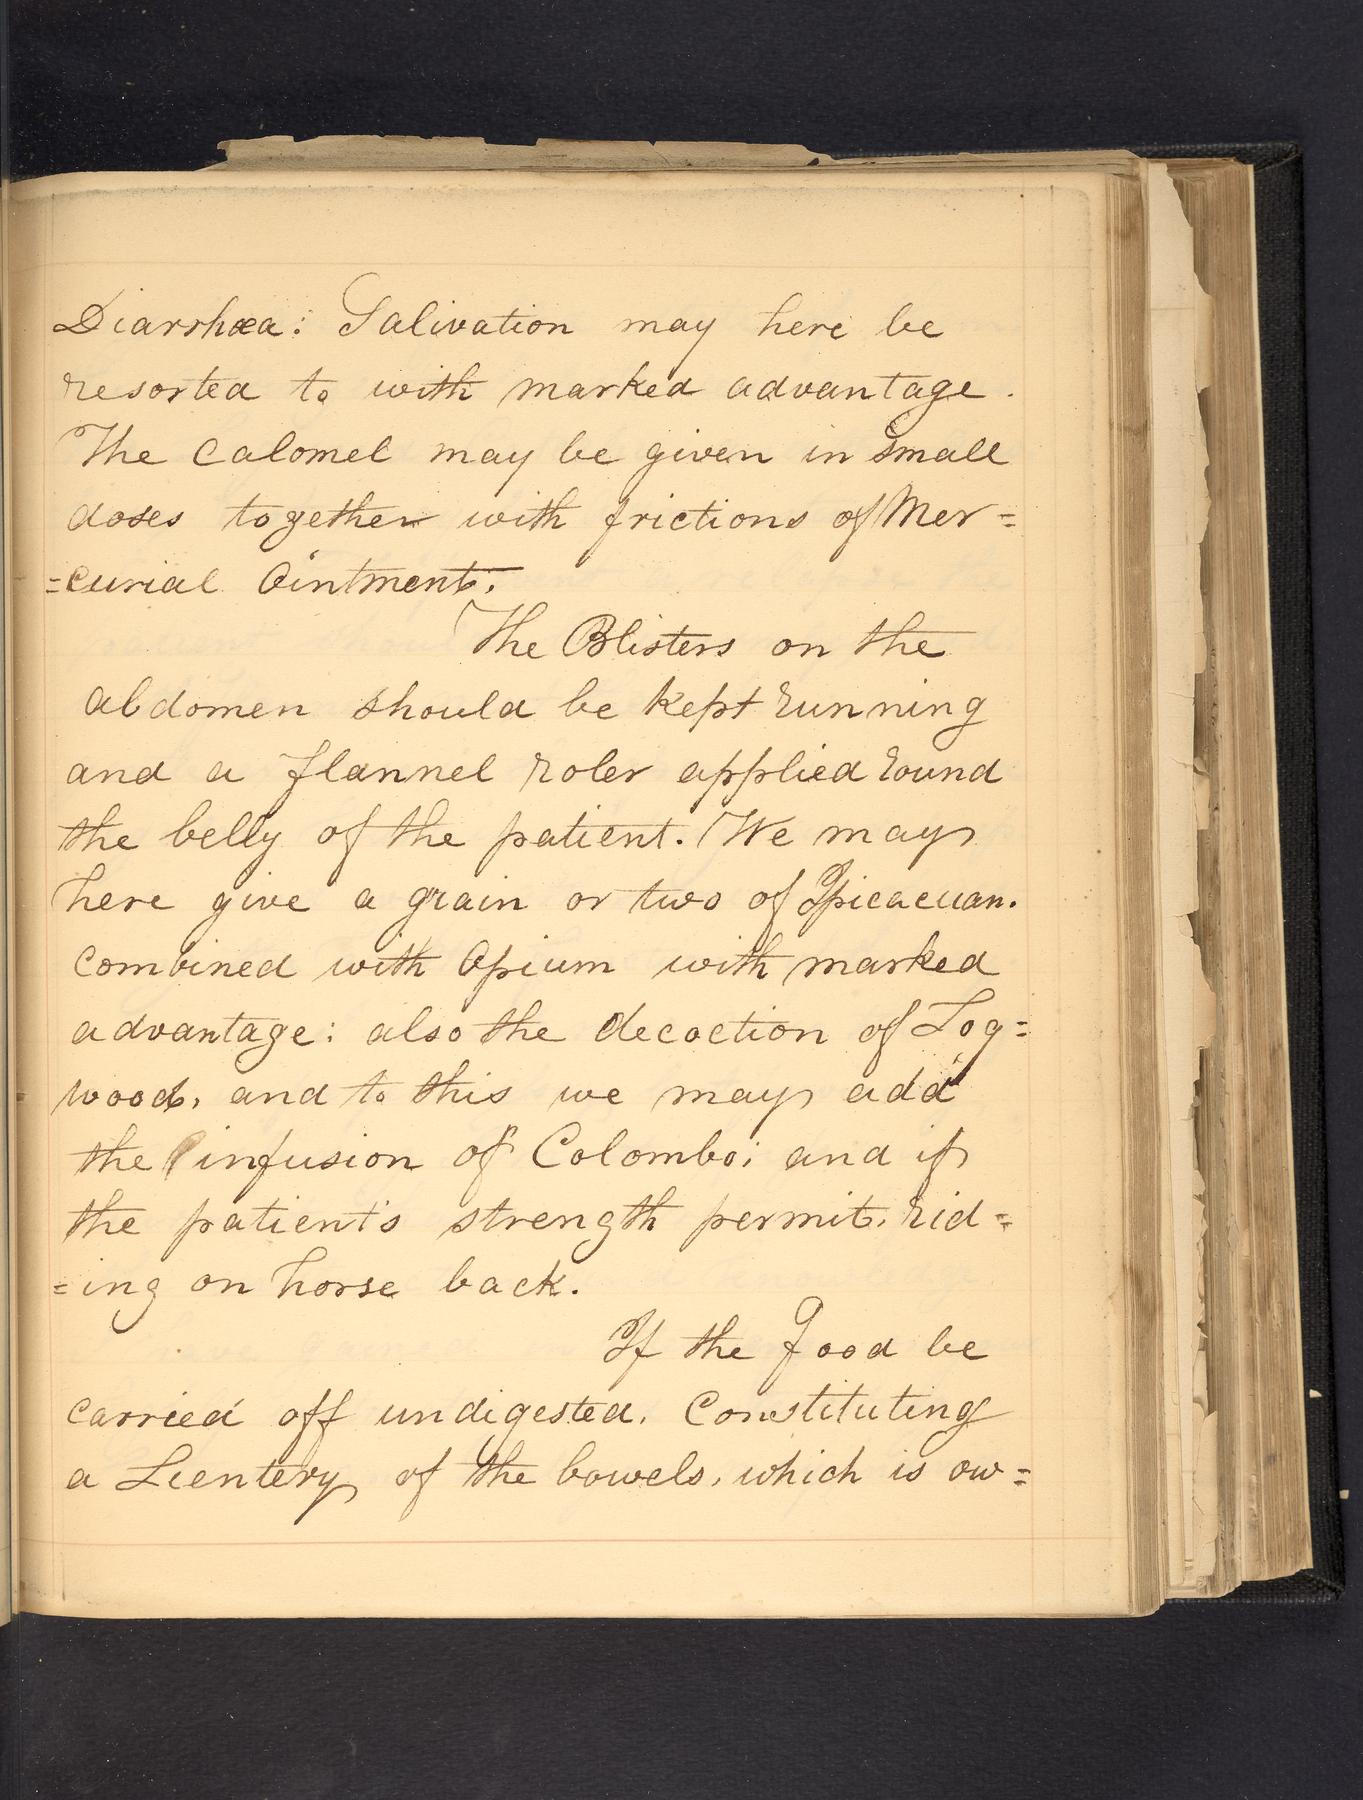 Diarrhœa: Salivation may here be
resorted to with marked advantage.
The Calomel may be given in small
doses together with frictions of Mer=
=curial Ointment.
The Blisters on the
abdomen should be kept running
and a flannel roler applied round
the belly of the patient. We may
here give a grain or two of Ipicacuan.
combined with Opium with marked
advantage: also the decoction of Log=
wood, and to this we may add
the infusion of Colombo; and if
the patient's strength permit, rid=
=ing on horse back.
If the food be
carried off undigested, Constituting
a Lientery of the bowels, which is ow=